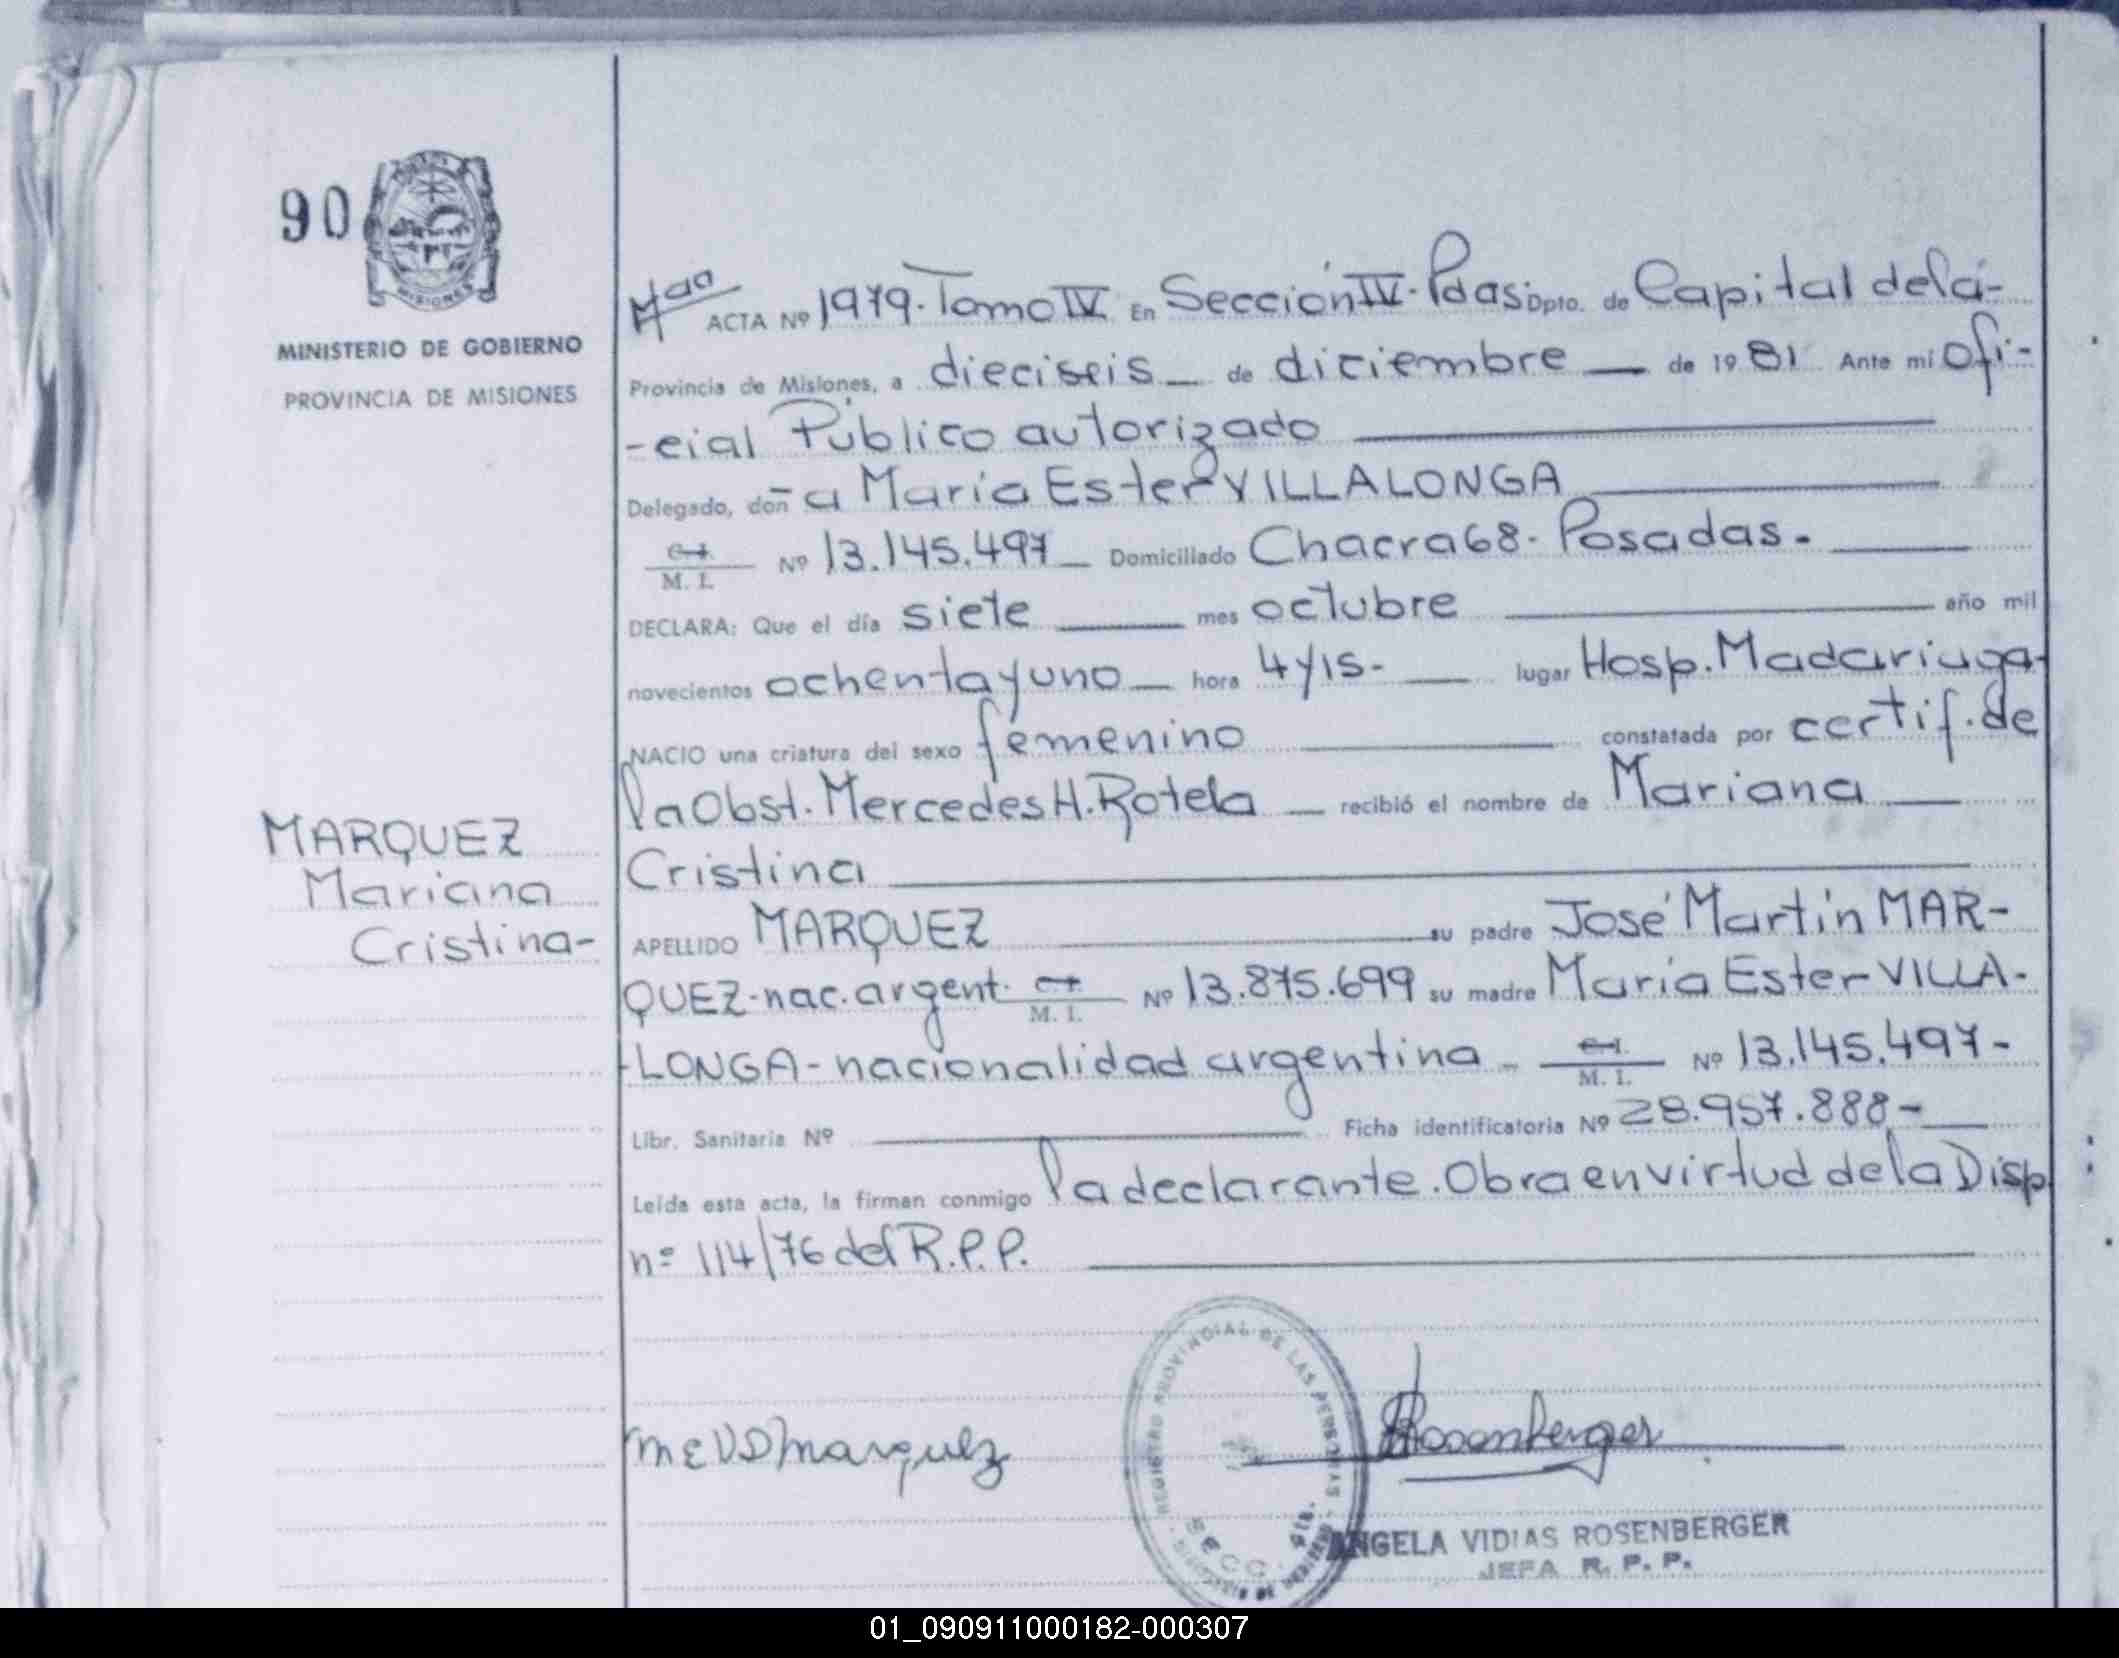 90
MISIONES
MINISTERIO DE GOBIERNO
PROVINCIA DE MISIONES
MARQUEZ
Mariana
Cristina-
ACTA Nº 1979. Tomo IV En Sección IV. Pdas. Dpto. de Capital de la-
Provincia de Misiones, a dieciseis de diciembre de 1981 Ante mi Ofi-
-cial Público autorizado
Delegado, doña María Ester VILLALONGA
C.I.
M. I. Nº 13.145.497 Domiciliado Chacra 68. Posadas.
DECLARA: Que el día siete mes octubre año mil
novecientos ochenta y uno hora 4 y 15- lugar Hosp. Madariaga-
NACIO una criatura del sexo femenino constatada por certif. de
la Obst. Mercedes H. Rotela recibió el nombre de Mariana
Cristina
APELLIDO MARQUEZ su padre José Martín MAR-
QUEZ-nac. argent. C.I. M. I. Nº 13.875.699 su madre María Ester VILLA-
-LONGA-nacionalidad argentina- C.I. M. I. Nº 13.145.497-
Libr. Sanitaria Nº Ficha identificatoria Nº 28.957.888-
Leída esta acta, la firman conmigo la declarante. Obra en virtud de la Disp
nº 114/76 del R.P.P.
M E V D Marquez
Rosenberger
REGISTRO PROVINCIAL DE LAS PERSONAS
SECC.
ANGELA VIDIAS ROSENBERGER
JEFA R. P. P.
01_090911000182-000307